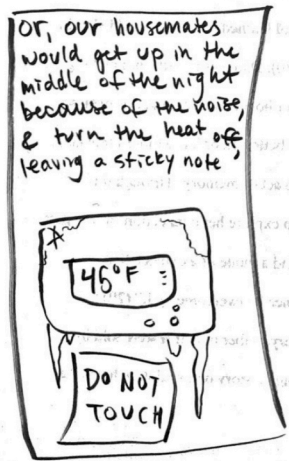 or, our housemates
would get up in the
middle of the night
because of the noise,
& turn the heat off,
leaving a sticky note,
45°F
DO NOT
TOUCH